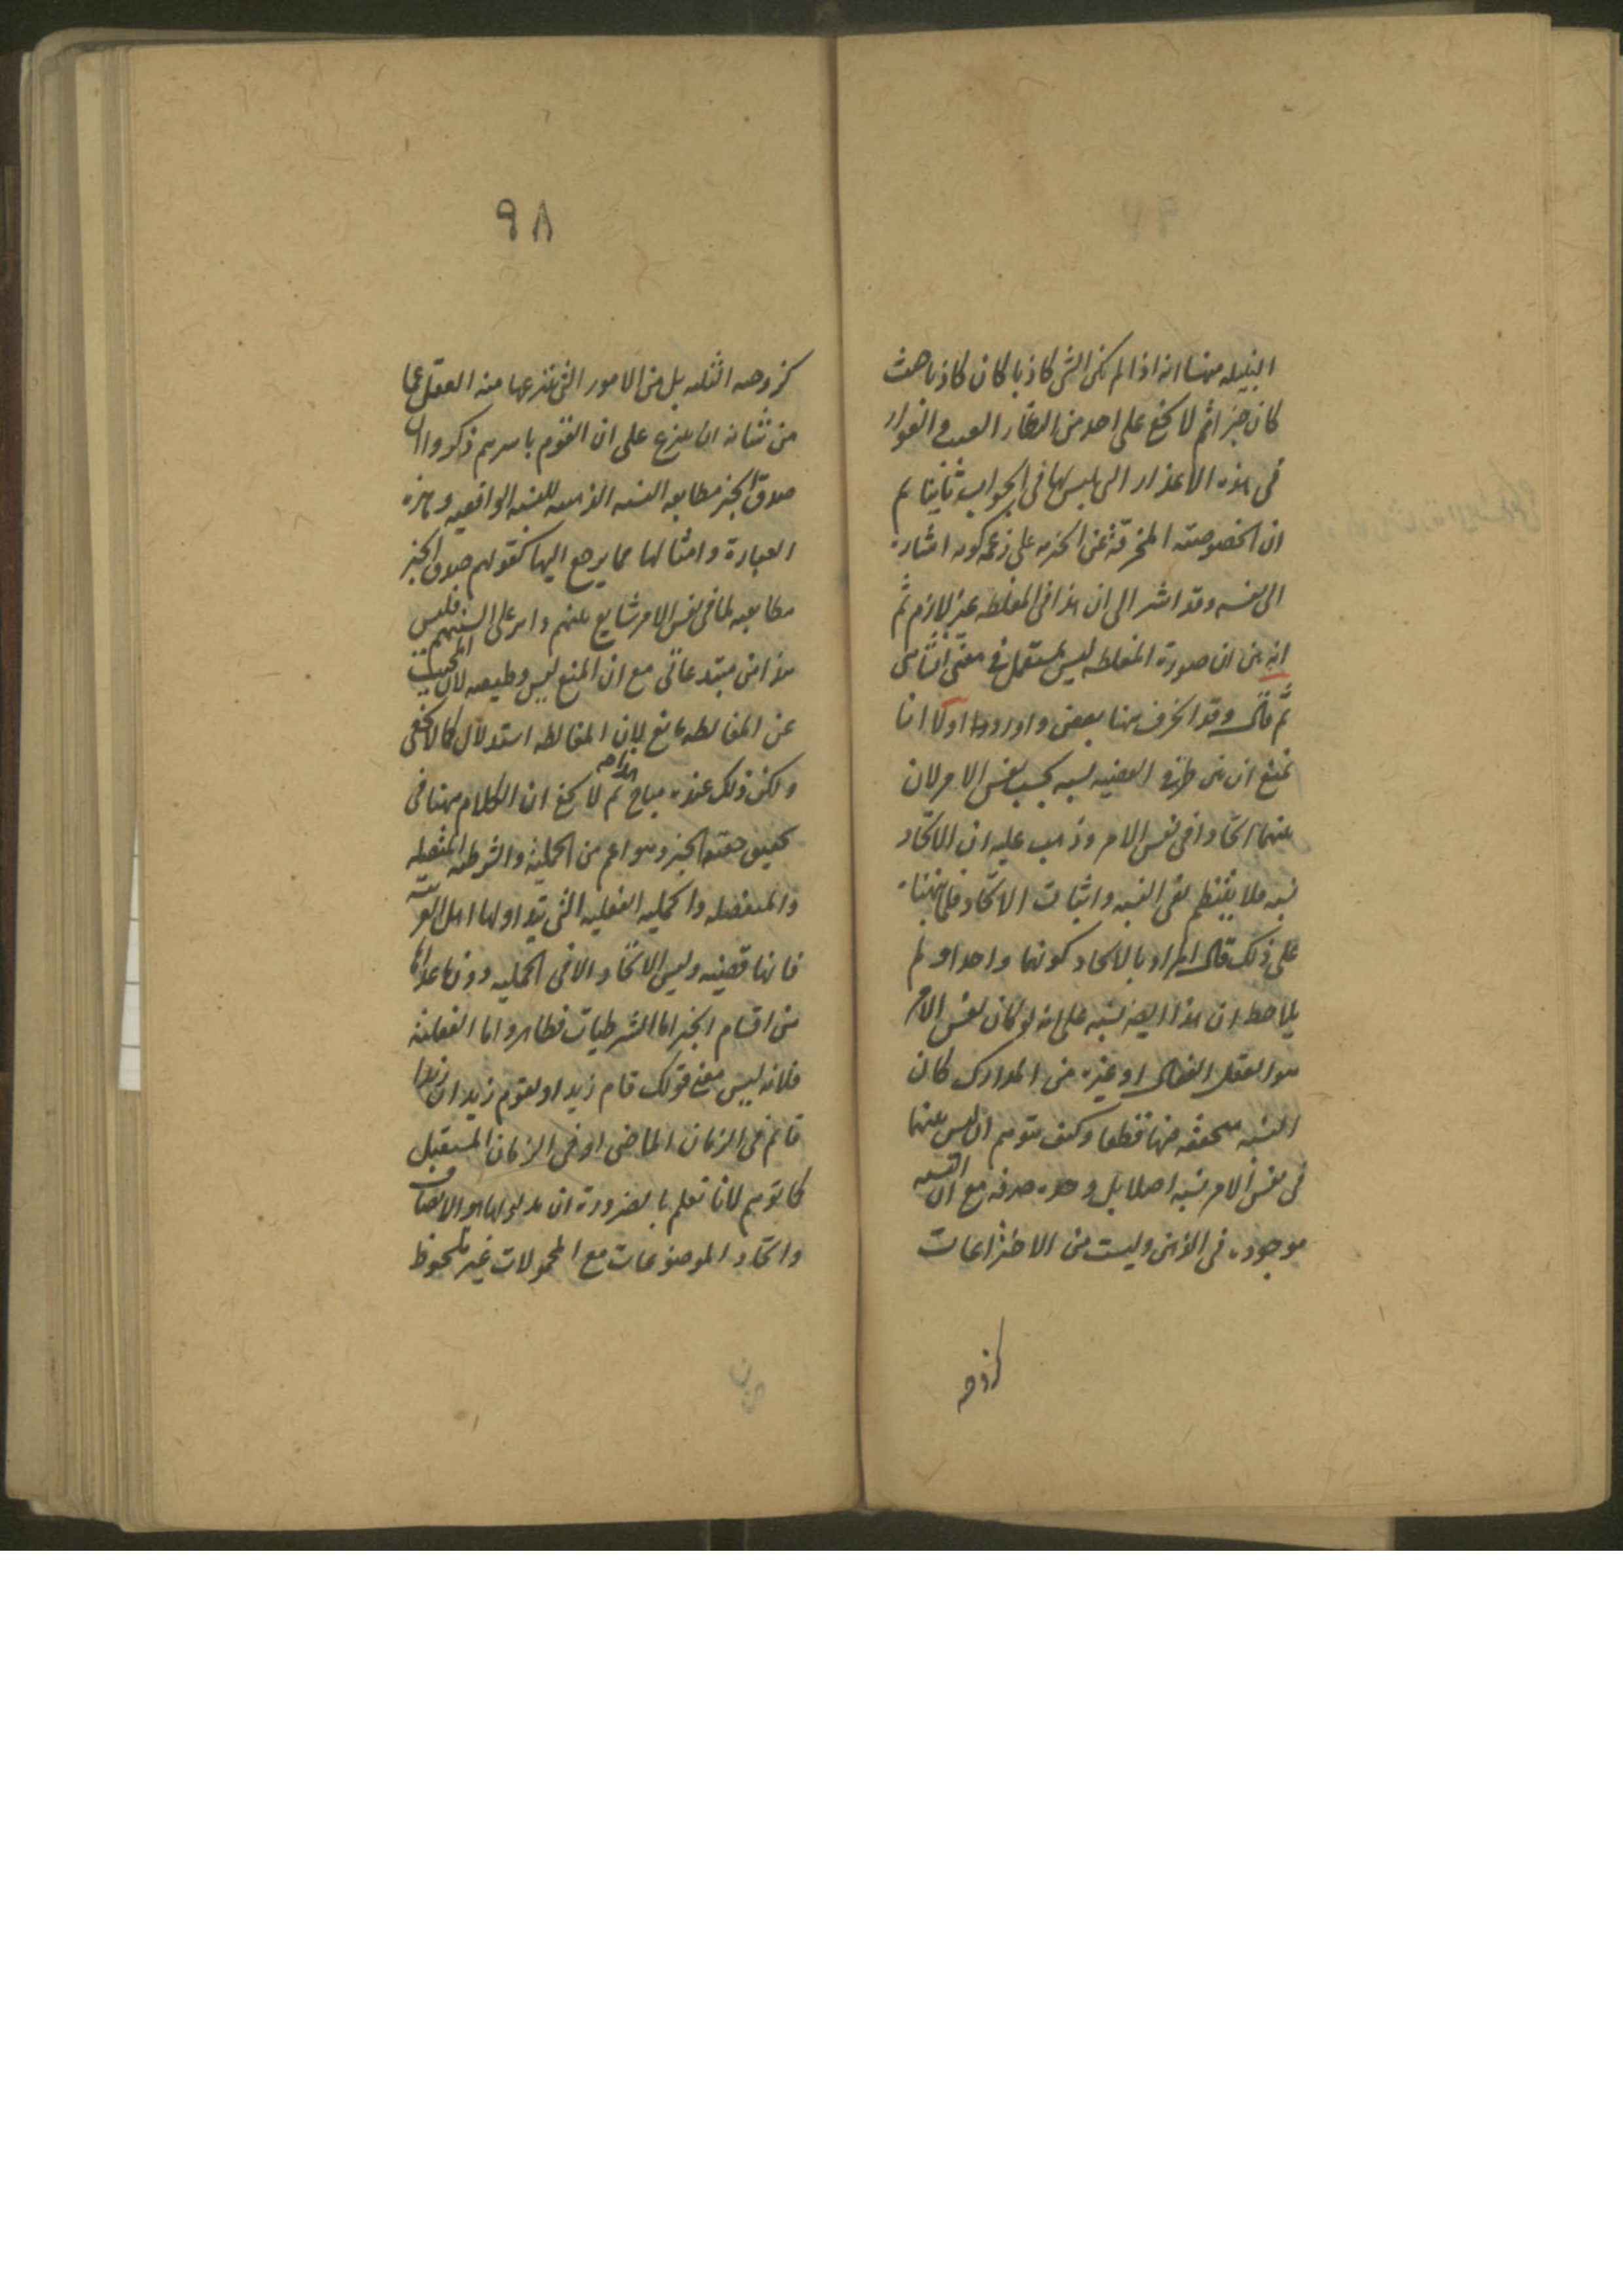 النبيله منها انه اذا لم يكن الشى كاذبا كان كاذبا حيث
كان خبرا ثم لا يخفى على احد من النظار العيب و العوار
فى هذه الاعذار التى يلبس لها فى الجواب ثانيا ثم
ان خصوصيته المخرقة عن الخبريه على زعمه كونه اشارة
الى نفسه وقد اشير الى ان هذا فى المغلطه غير لازم ثم
انه بين ان صورة المغلطه ليس بمستعمل فى معنى انشائى
ثم قال وقد انحرف هنا بعض واورد اولا انا
نمنع ان بين طرفى القضيه نسبه بحسب نفس الامر لان
بينهما اتحادا فى نفس الامر وذهب عليه ان الاتحاد
نسبه فلا ينتظم نفى النسبه واثبات الاتحاد فلما نبهناه
على ذلك قال المراد بالاتحاد كونهما واحدا و لم
يلاحظ ان هذا ايضا نسبه على انه لو كان نفس الامر
هو العقل الفعال او غيره من المدارك كان
النسبه متحققه فيها قطعا وكيف يتوهم ان ليس بينهما
فى نفس الامر نسبه اصلا بل وحده صرفه مع ان النسبه
موجوده فى الذهن وليست من الاختراعات
كزوجه
٩٨
كزوجيه الثلثه بل من الامور التى ينتزعها منه العقل عما
من شانه ان ينتزع على ان القوم باسرهم ذكروا ان
صدق الخبر مطابقه النسبه الذهنيه للنسبه الواقعيه وهذه
العبارة وامثالها مما يرجع اليها كقولهم صدق الخبر
مطابقه لما فى نفس الامر شايع بينهم داير على السنتهم فليس
هذا من مبتدعاتى مع ان المنع ليس وظيفه لان المجيب
عن المغالطه مانع لان المغالطه استدلال كما لا يخفى
ولكن ذلك عنده مباح ثم لا يخفى ان الكلام هنا فى
تحقيق حقيقه الخبر وهو اعم من الحمليه والشرطيه المتصله
والمنفصله والحمليه الفعليه التى يتداولها اهل العربيه
فانها قضيه وليس الاتحاد الا فى الحمليه دون ما عداها
من اقسام الخبر اما الشرطيات فظاهر واما الفعليه
فلانه ليس معنى قولك قام زيد او يقوم زيد ان زيدا
قائم فى الزمان الماضى او فى الزمان المستقبل
كما توهم لانا نعلم بالضرورة ان مدلولها هو الاتصاف
واتحاد الموضوعات مع المحمولات غير ملحوظ